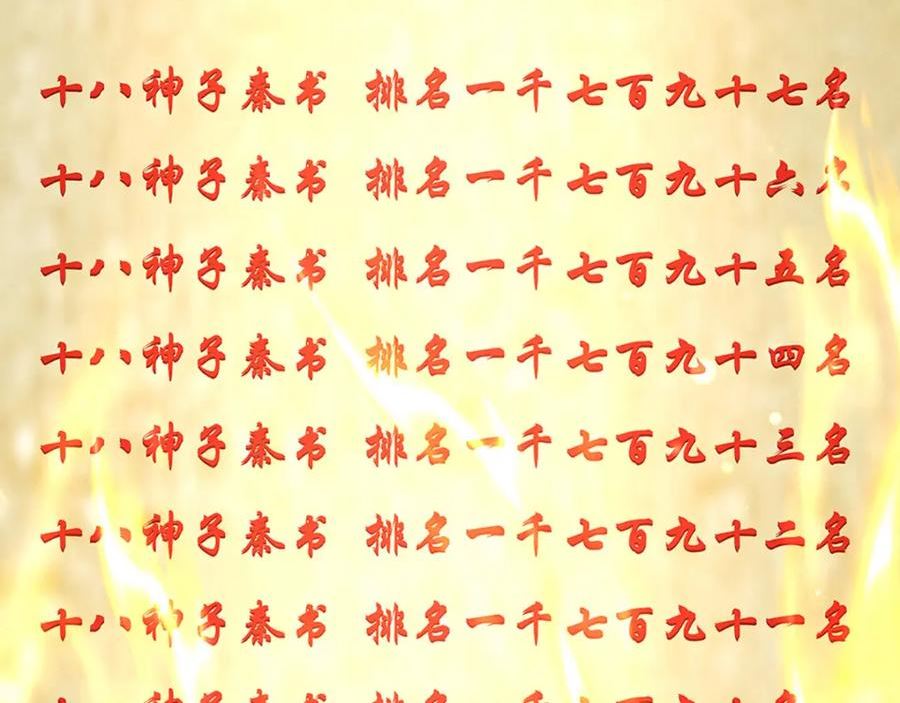 十八神子秦书 排名一千七百九十七名
十八神子秦书 排名一千七百九十六名
十八神子秦书 排名一千七百九十五名
十八神子秦书 排名一千七百九十四名
十八神子秦书 排名一千七百九十三名
十八神子秦书 排名一千七百九十二名
十八神子秦书 排名一千七百九十一名